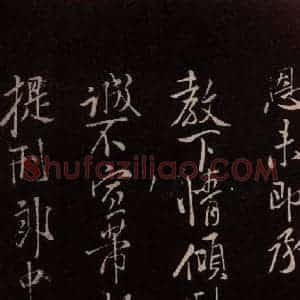 恩未即承
教下情傾
誠不宣帶
提刑郎中
Shufaziliao.com